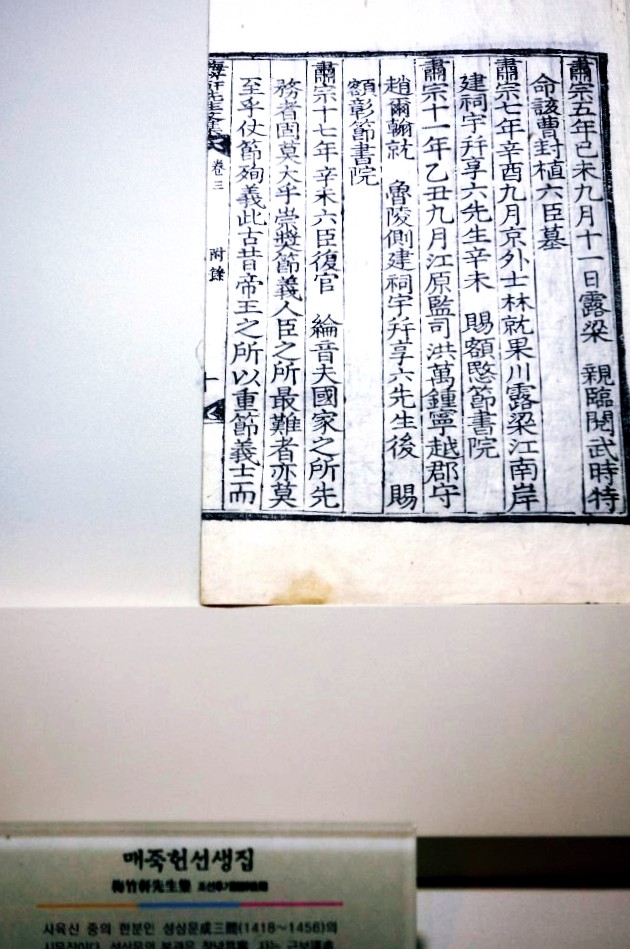 肅宗五年己未九月十一日露梁 親臨閱武時特
命該曹封植六臣墓
肅宗七年辛酉九月京外士林就果川露梁江南岸
建祠宇幷享六先生辛未 賜額愍節書院
肅宗十一年乙丑九月江原監司洪萬鍾寧越郡守
趙爾翰就 魯陵側建祠宇幷享六先生後 賜
額彰節書院
肅宗十七年辛未六臣復官 綸音夫國家之所先
務者固莫大乎崇奬節義人臣之所最難者亦莫
至乎仗節殉義此古昔帝王之所以重節義士而
卷三 附錄 十
매죽헌선생집
梅竹軒先生集 조선후기
사육신 중의 한분인 성삼문成三問(1418~1456)의